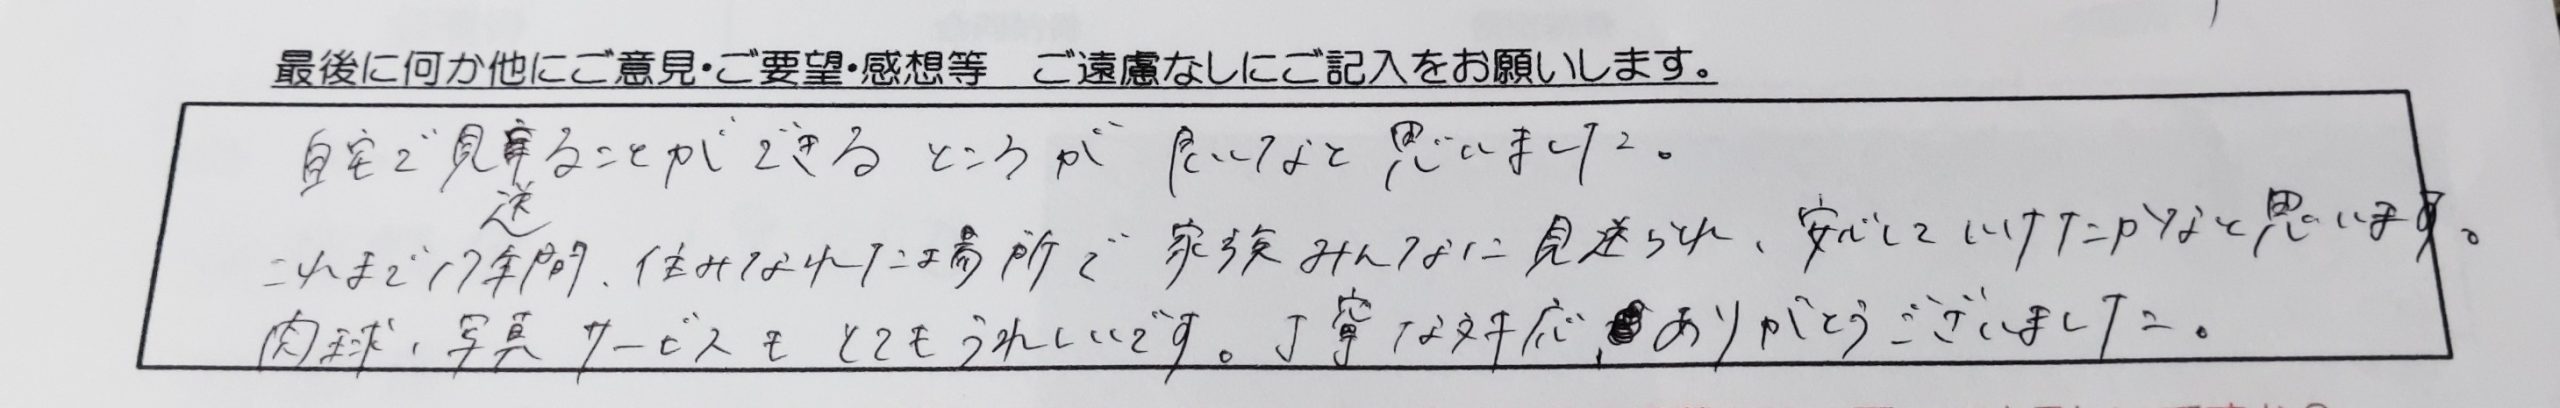 最後に何か他にご意見・ご要望・感想等　ご遠慮なしにご記入をお願いします。
自宅で見送ることができるところが良いなと思いました。
これまで17年間、住みなれた場所で家族みんなに見送られ、安心していけたかなと思います。
肉球、写真サービスもとてもうれしいです。丁寧な対応、ありがとうございました。